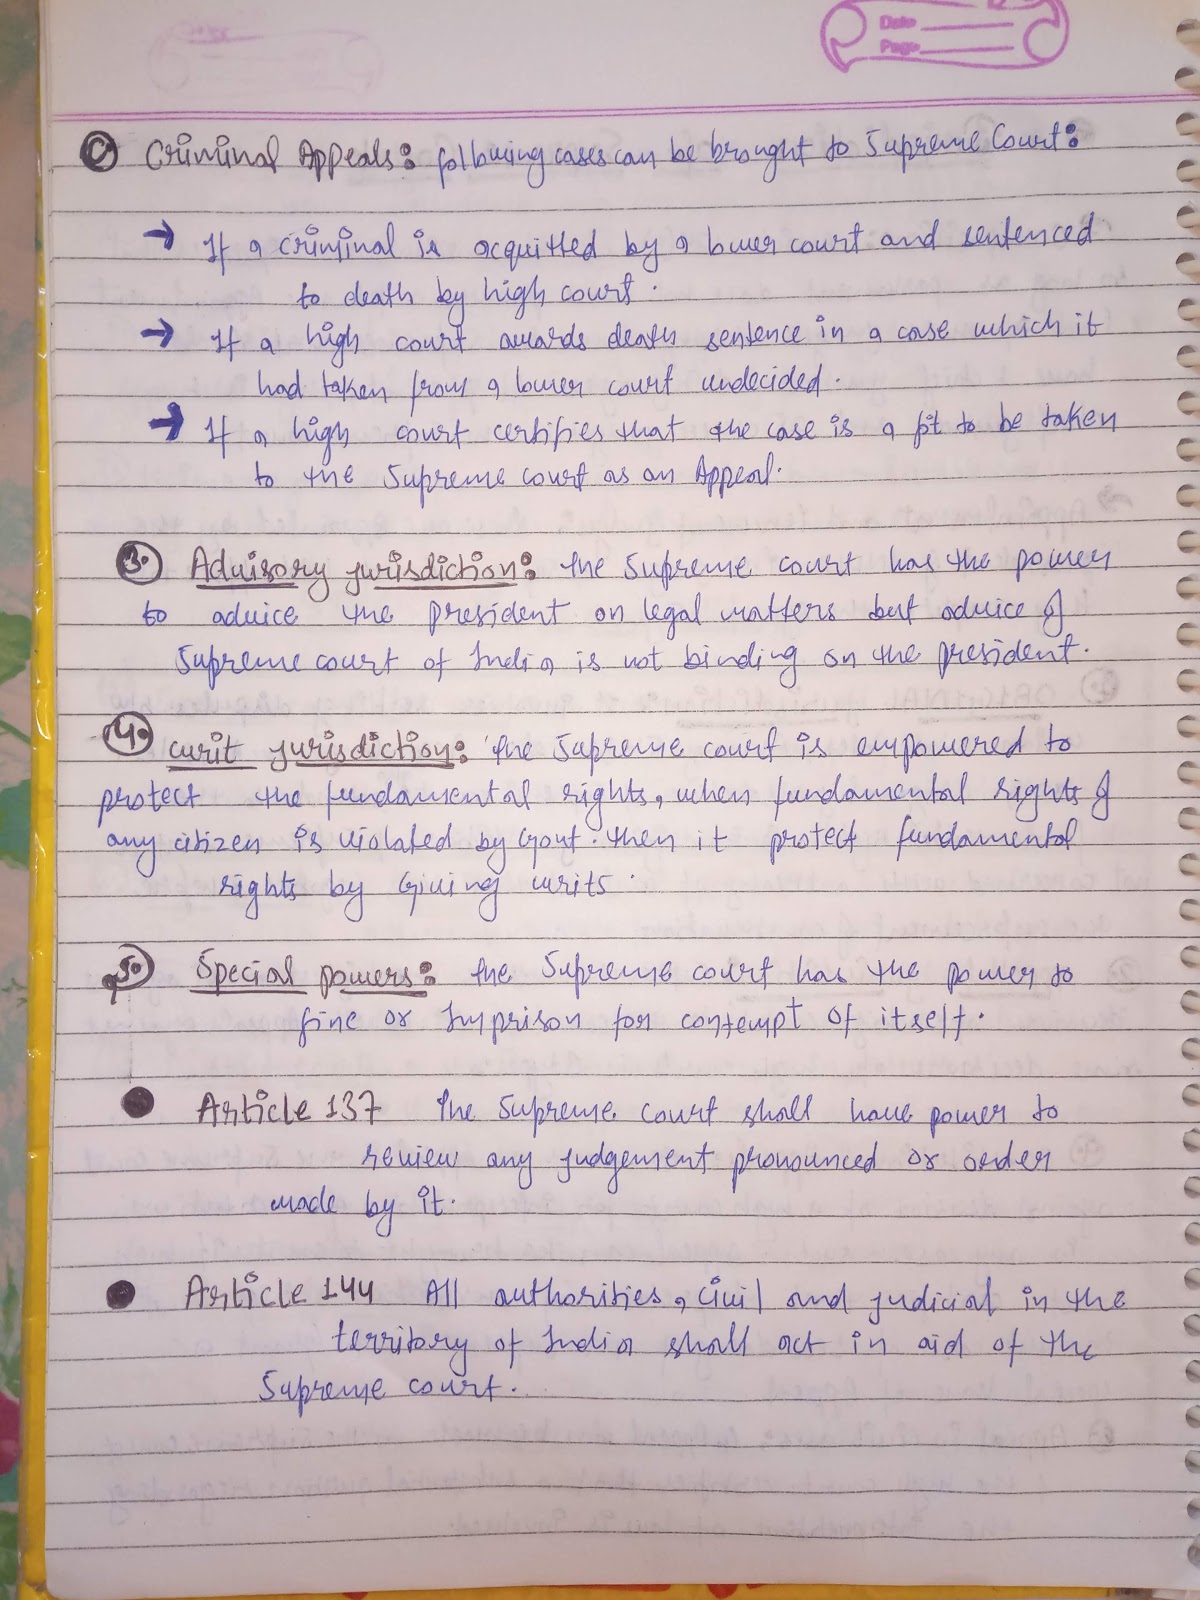 Date
Page
C Criminal Appeals: following cases can be brought to Supreme Court:
→ If a criminal is acquitted by a lower court and sentenced
to death by high court.
→ If a high court awards death sentence in a case which it
had taken from a lower court undecided.
→ If a high court certifies that the case is a fit to be taken
to the Supreme court as an Appeal.
3. Advisory jurisdiction: the Supreme court has the power
to advice the president on legal matters but advice of
Supreme court of India is not binding on the president.
4. writ jurisdiction: the Supreme court is empowered to
protect the fundamental rights, when fundamental rights of
any citizen is violated by Govt. then it protect fundamental
rights by Giving writs.
5. Special powers: the Supreme court has the power to
fine or Imprison for contempt of itself.
● Article 137 The Supreme court shall have power to
review any judgement pronounced or order
made by it.
● Article 144 All authorities, civil and judicial in the
territory of India shall act in aid of the
Supreme court.